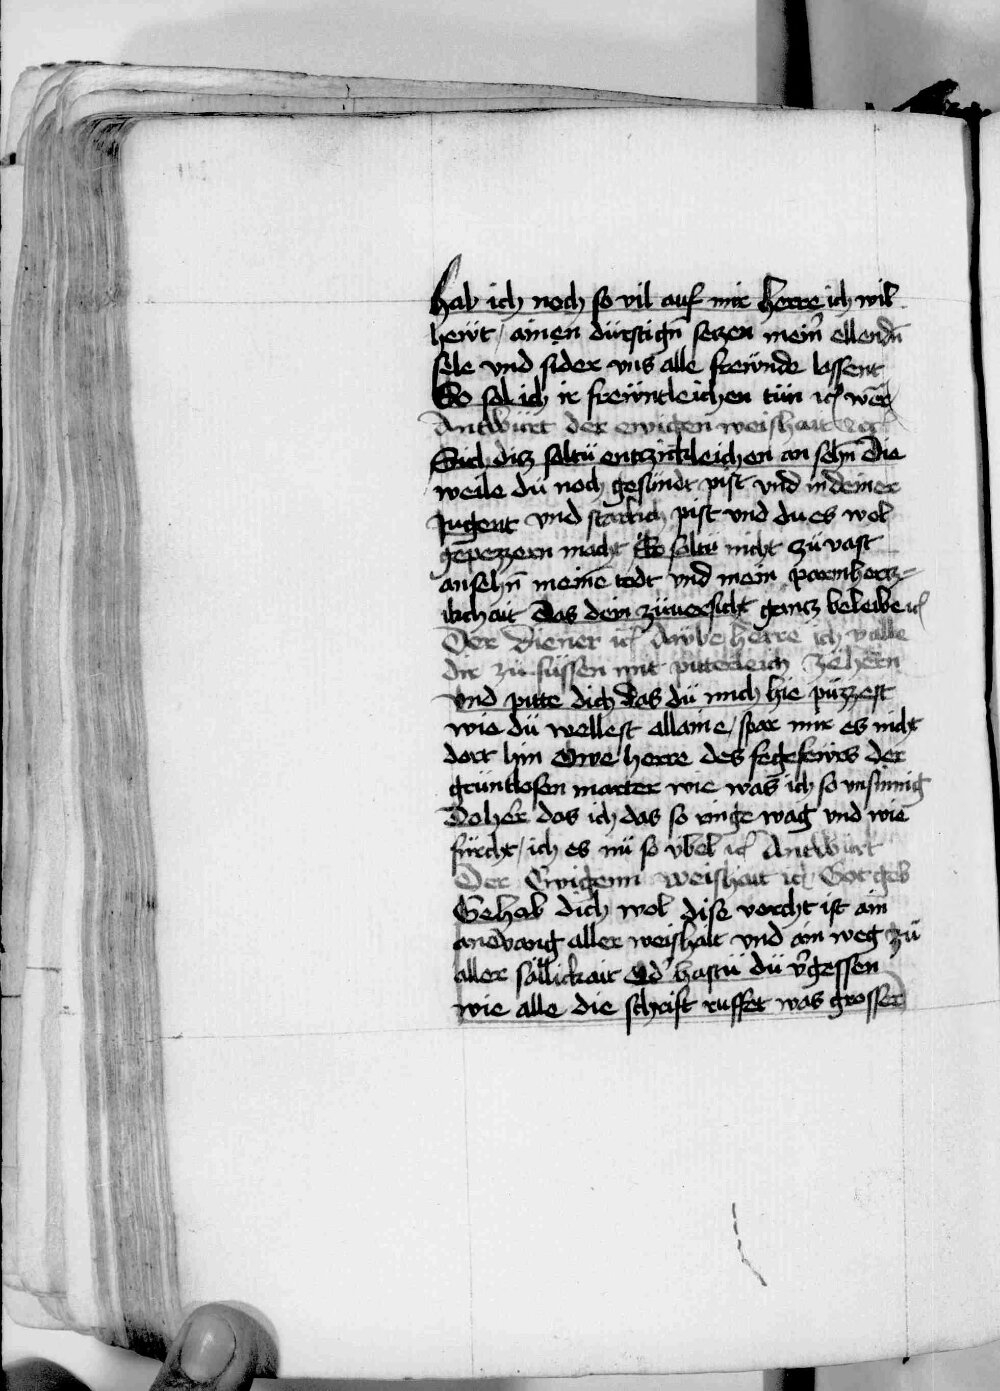 hab ich noch so vil auf mir herre ich wil
hewt / ainen dürftign̄ seczen mein̄ ellendn̄
sele vnd sider vns alle frewnde lassent
So sol ich ir frewntleichen tün ic̄ wer
Antwürt der ewigen weishait
Sich dicz soltu entzickleichen an sehn̄ Die
weile dü noch gesündt pist vnd in deiner
Jugent vnd starkch pist vnd du es wol
gepezzern macht So soltu nicht zü vast
ansehn̄ meinē todt vnd mein parmhercz=
ikchait Das dein züuersicht gancz beleibe ic̄
Der Diener ic̄ Awbe herre ich valle
dir zü füssen mit pitterleich zehern
vnd pitte dich das dü mich hie püzzest
wie dü wellest allaine / spar mir es nicht
dort hin Owe herre des fegefewrs der
grüntlosen marter wie was ich so vnsinnig
Doher das ich das so ringe wag vnd wie
fürcht / ich es nü so vbel ic̄ Antwürt
Der Ewigenn weishait ic̄ Got geb
Gehab dich wol dise vorcht ist ain
anevang aller weishait vnd ain weg zü
aller sällickait Od' hastü dü v'gessen
wie alle die schrift ruffet was grosser